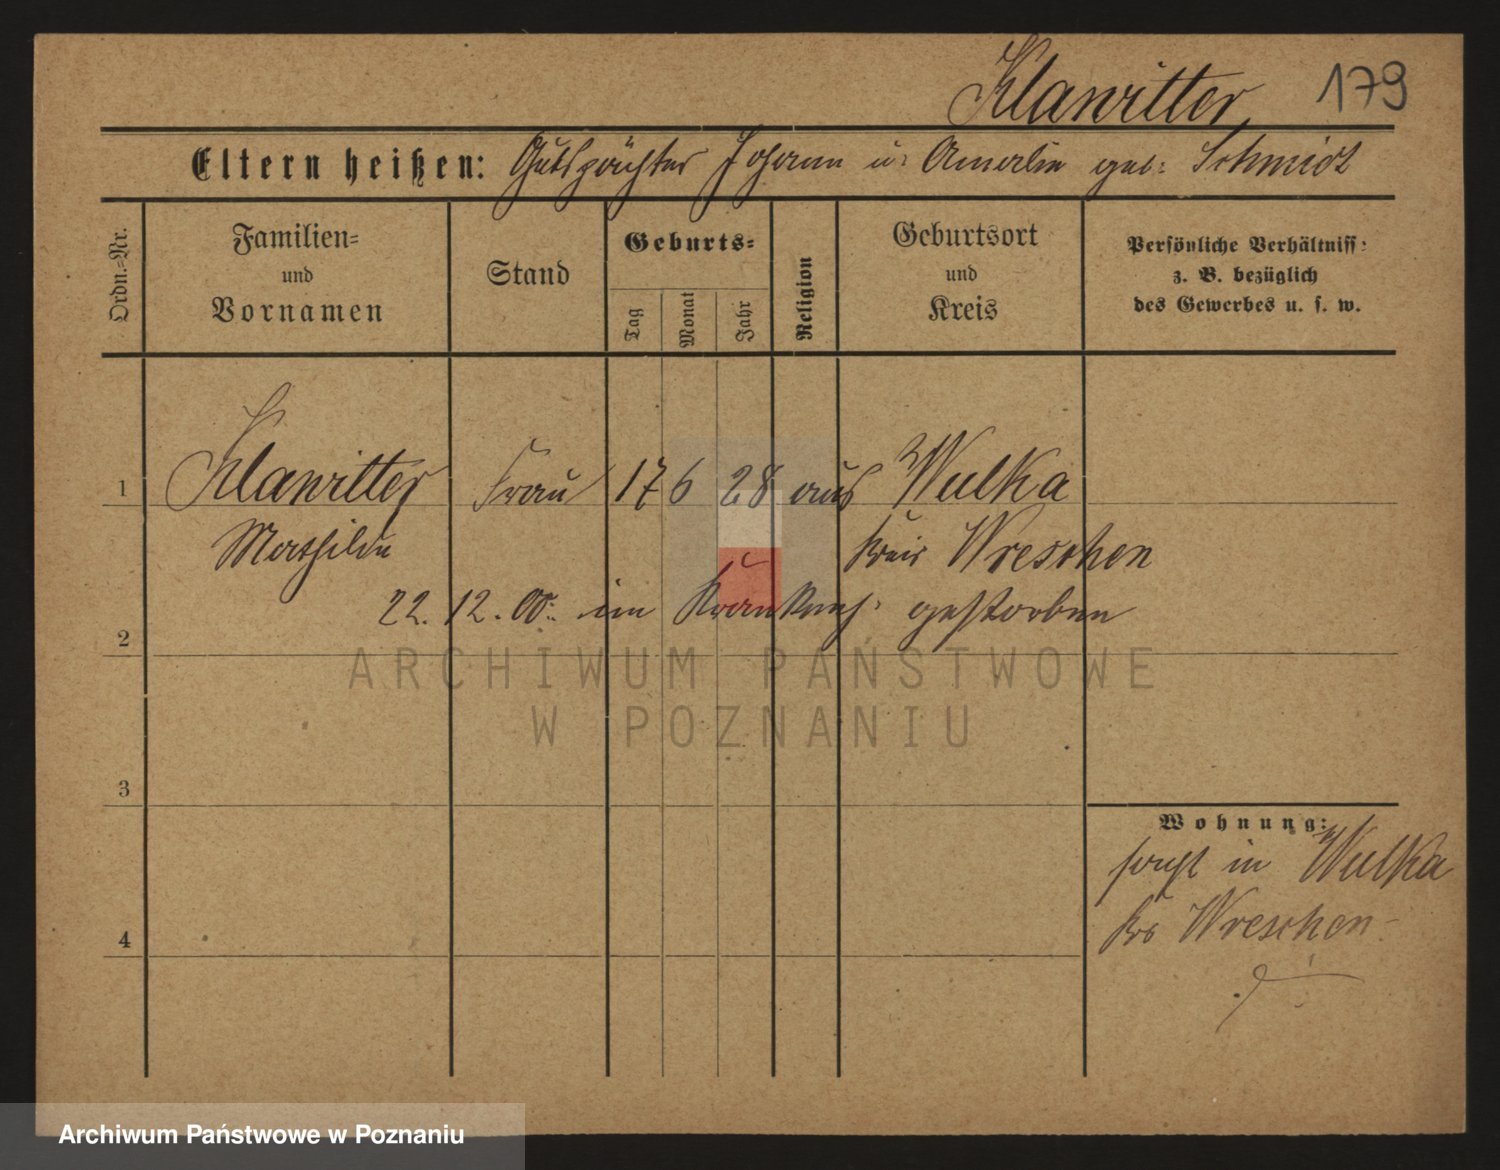 Klawitter 179
Eltern heißen: Gutspächter Johann u: Amalie geb: Schmidt
Ordn.-Nr.
Familien-
und
Vornamen
Stand
Geburts-
Tag
Monat
Jahr
Religion
Geburtsort
und
Kreis
Persönliche Verhältniss:
z. B. bezüglich
des Gewerbes u. s. w.
1 Klawitter Frau 17 6 28 aus Wulka
Mathilde Kreis Wreschen
22. 12. 00: im Krankenh: gestorben
2
ARCHIWUM PAŃSTWOWE
W POZNANIU
3
Wohnung:
sonst in Wulka
Krs Wreschen
4
Archiwum Państwowe w Poznaniu